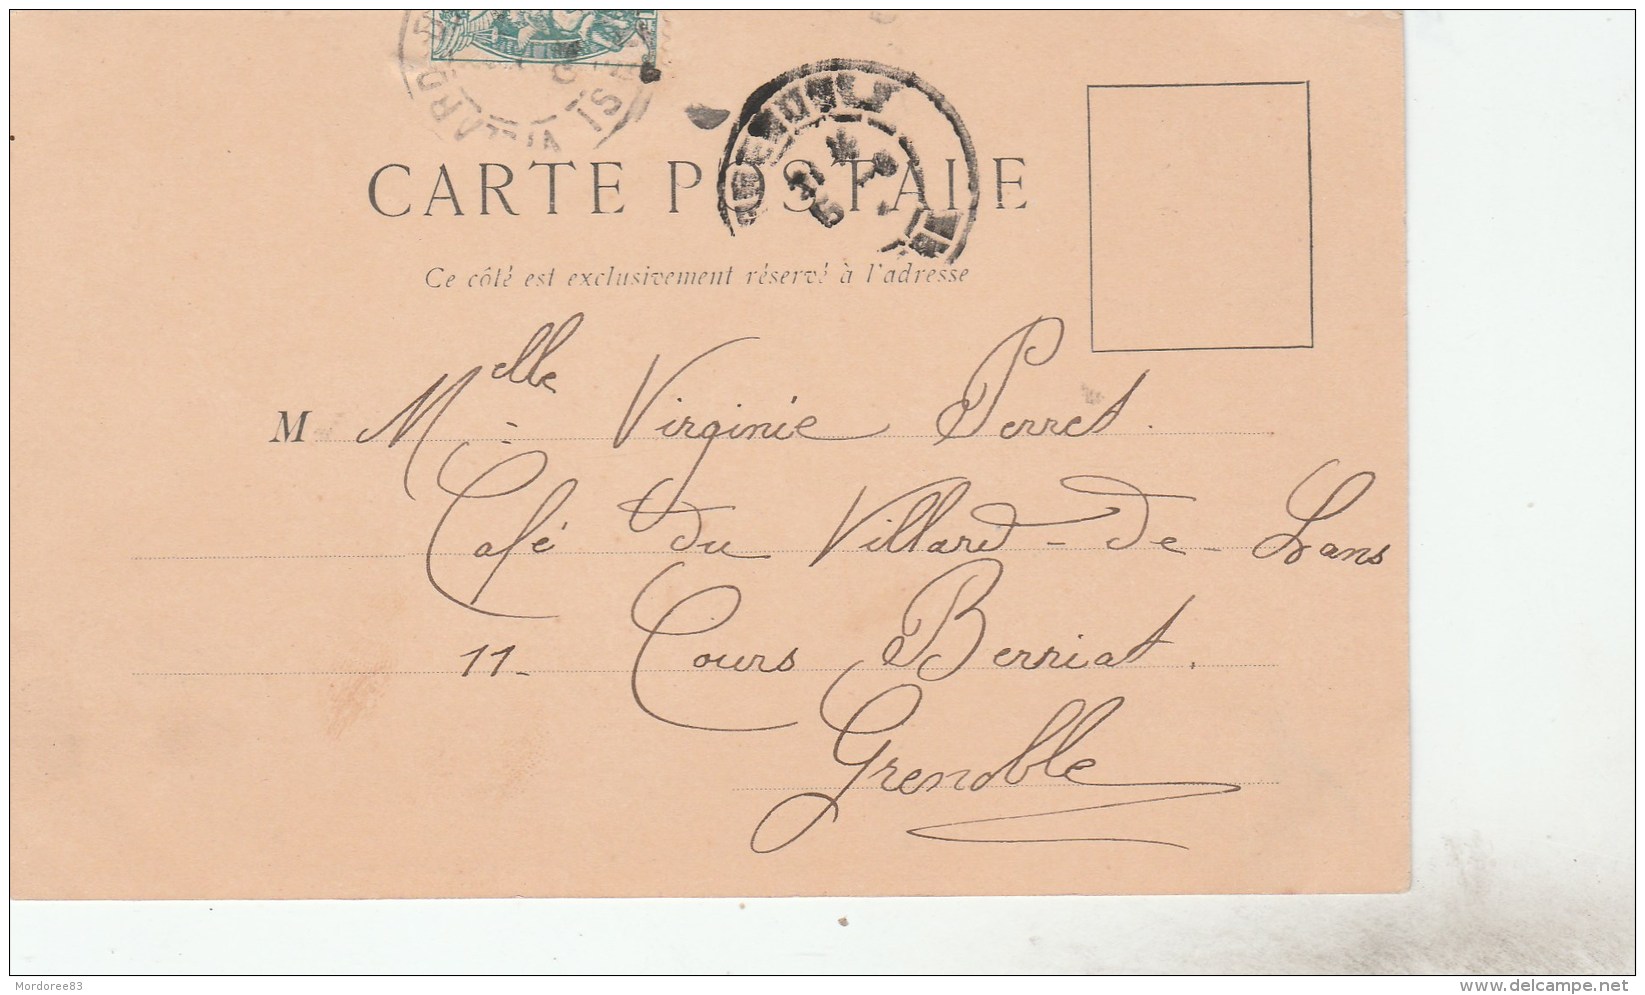 GRENOBLE
CARTE POSTALE
Ce côté est exclusivement réservé à l'adresse
M Melle Virginie Perret.
Café du Villard-de-Lans
11- Cours Berriat.
Grenoble
Mordoree83
delcampe.net